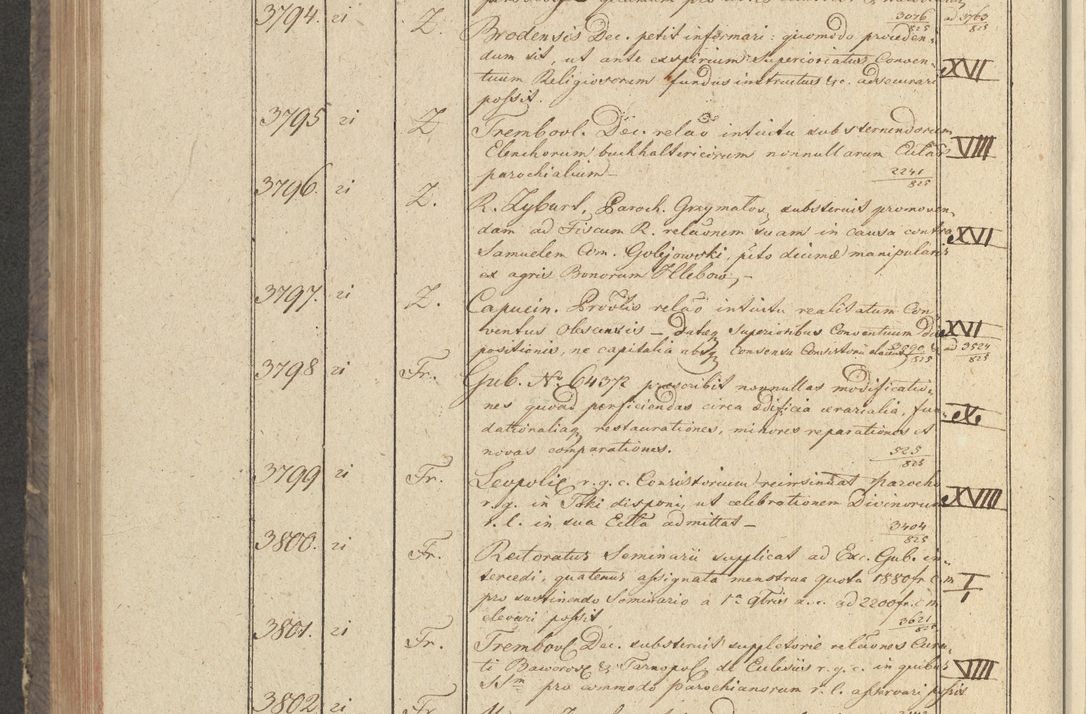 3794. 21 Z. Brodensis Dec. petit informari: quomodo proceden- 3076/825 ad 3763/825
dum sit, ut ante exspirium Superioriatus Conven- XVI
tuum Religiosorum fundus instructus &c. adsecurari
possit.
3795 21 Z Trembovl. Dec. relao intuitu substernendorum
Elenchorum buchhaltericorum nonnullarum VIII
parochialium— 2241/825
3796. 21 Z. R. Zyburt, Paroch. Grzymalov, substernit promoven-
dam ad Fiscum R. relaonem suam in causa contra XVI
Samuelem Com. Golejowski, pito decimæ manipularis
ex agris Bonorum Hlebow,—
3797. 21 Z. Capucin. relao intuitu realitatum Con-
ventus Olescensis — dateq Superioribus Conventuum dis XVI
positionis, ne capitalia absq consensu Consistorii ad 3524/825
3798 21 Fr. Gub. No 64372 præscribit nonnullas modificatio-
nes quoad perficiendas circa ædificia ærarialia, fun- X
dationaliaq restaurationes, minores reparationes et
novas comparationes. 525/825
3799 21 Fr. Leopolien r. g. c. Consistorium parocho
r. g. in Toki disponi, ut celebrationem Divinorum XVIII
r. l. in sua Ecclla admittat — 3404/825
3800. 21 Fr. Rectoratus Seminarii supplicat ad Exc. Gub. in-
tercedi, quatenus assignata menstrua quota 1880 fr. c. m I/1
pro sustinendo Seminario a 1a a. c. ad 2200 fr. c. m.
elevari possit 3621/825
3801. 21 Fr. Trembovl Dec. substernit suppletorie relaones Cura-
ti Baworov & Tarnopol de Ecclesiis r. g. c. in quibus VIII
SSm pro commodo parochianorum r. l. asservari possit
3802 21 Fr.